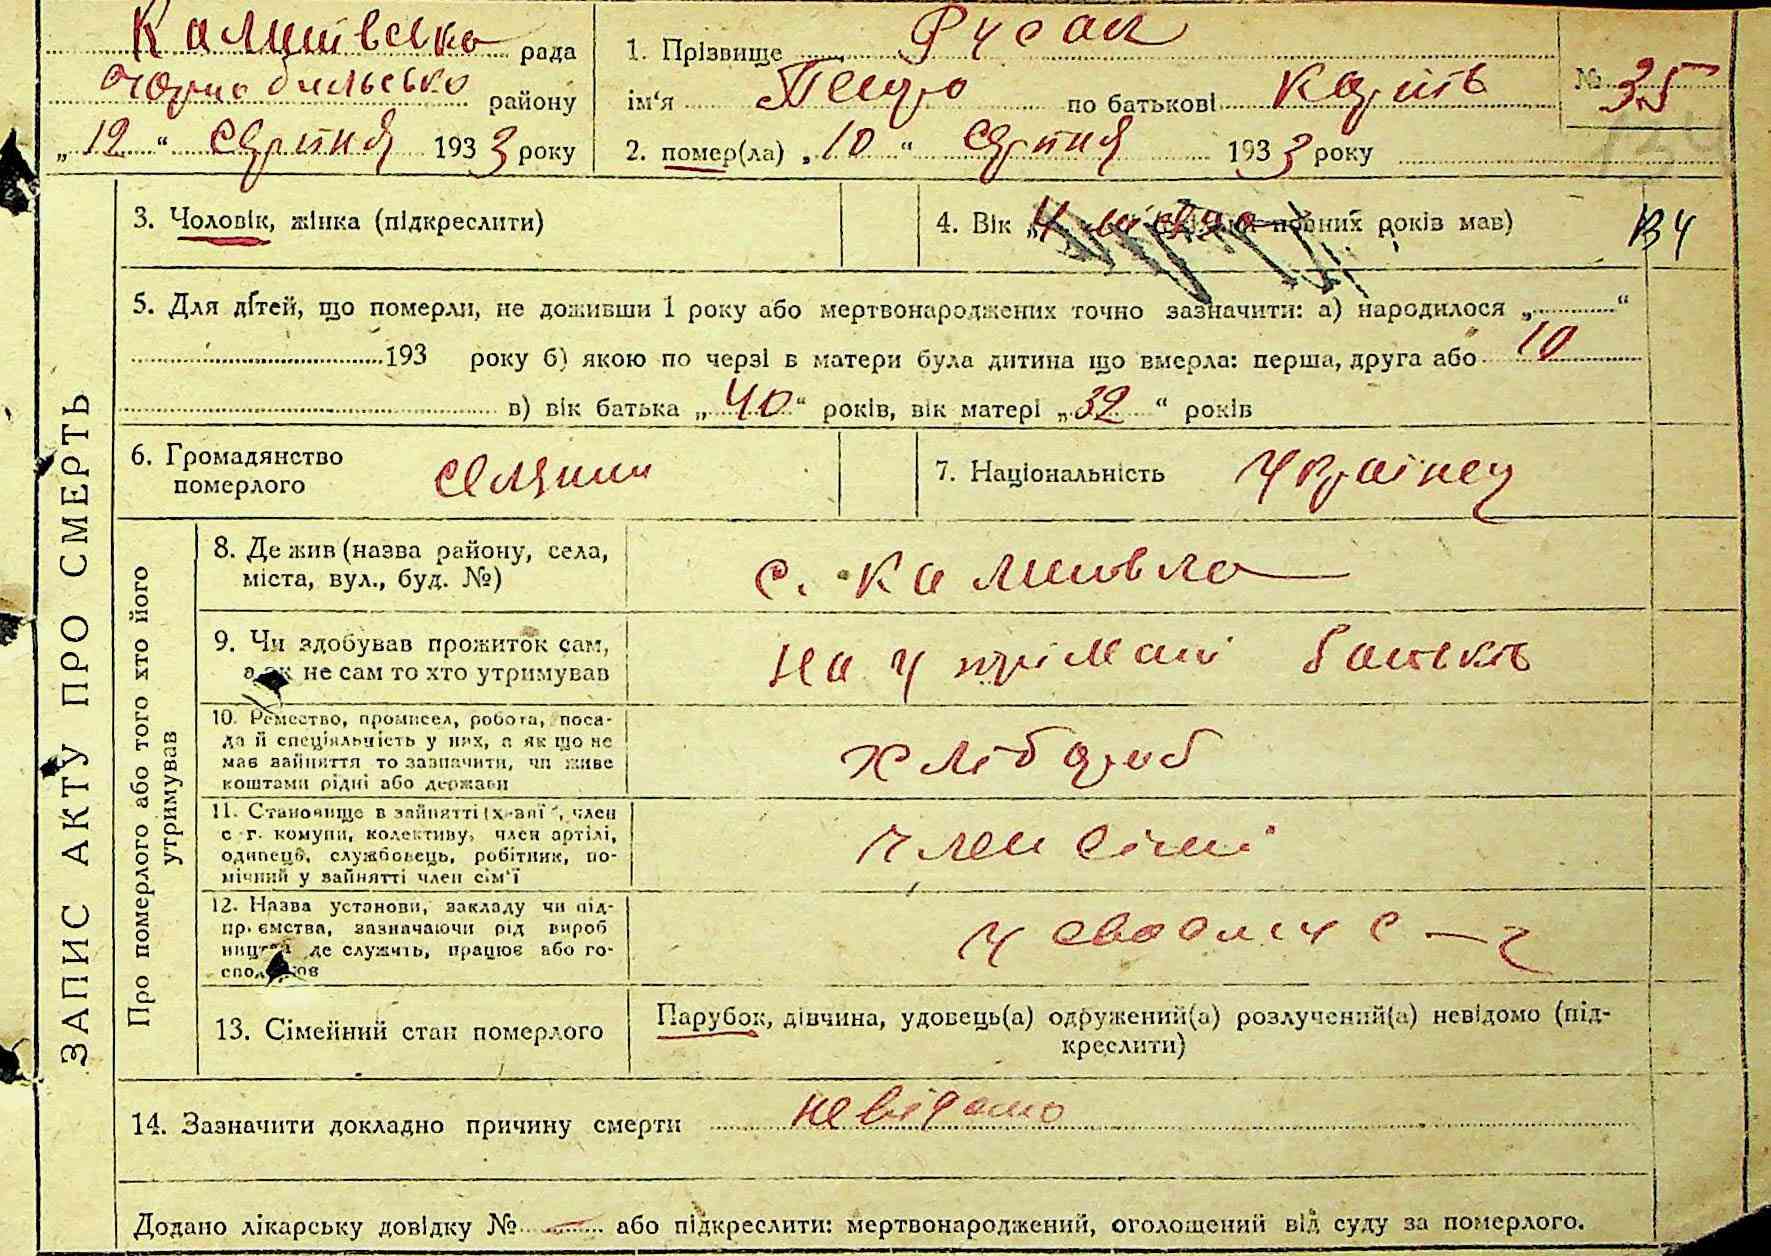 рада
1. Прізвище Русак
№ 35
району
ім'я Петро по батькові
„12“ серпня 1933 року
2. помер(ла) „10“ серпня 1933 року
3. Чоловік, жінка (підкреслити)
4. Вік „ повних років мав)
5. Для дітей, що померли, не доживши 1 року або мертвонароджених точно зазначити: а) народилося „ “
193 року б) якою по черзі в матери була дитина що вмерла: перша, друга або 10
в) вік батька „40“ років, вік матері „32“ років
6. Громадянство
померлого
селянин
7. Національність Українец
ЗАПИС АКТУ ПРО СМЕРТЬ
Про померлого або того хто його
утримував
8. Де жив (назва району, села,
міста, вул., буд. №)
с.
9. Чи здобував прожиток сам,
а як не сам то хто утримував
на батьків
10. Ремество, промисел, робота, поса-
да й спеціяльність у них, а якщо не
має зайняття то зазначити, чи живе
коштами рідні або держави
хлібороб
11. Становище в зайнятті член
с-г. комуни, колективу, член артілі,
одинець, службовець, робітник, по-
мічний у зайнятті член сім'ї
член сімї
12. Назва установи, закладу чи під-
приємства, зазначаючи рід вироб
ництва де служить, працює або го-
сподарював
у
13. Сімейний стан померлого
Парубок, дівчина, удовець(а) одружений(а) розлучений(а) невідомо (під-
креслити)
14. Зазначити докладно причину смерти невідомо
Додано лікарську довідку № або підкреслити: мертвонароджений, оголошений від суду за померлого.